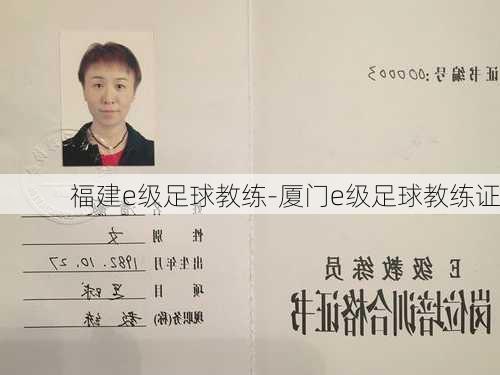 证书编号:000003
福建e级足球教练-厦门e级足球教练证
性 别 女
出生年月 1982.10.27
项 目 足球
现职务(称) 教练
E 级教练员
岗位培训合格证书